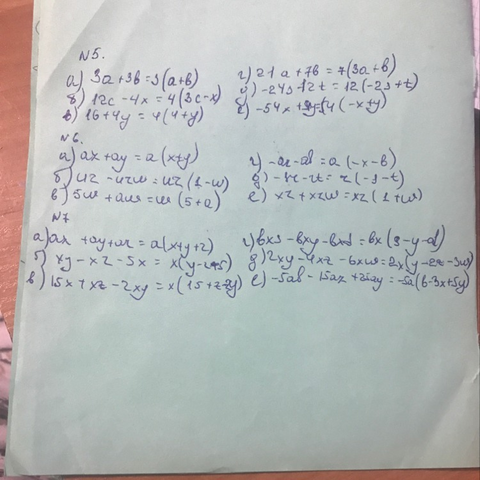 N5.
а) 3a+3b=3(a+b) г) 21a+7b=7(3a+b)
б) 12c-4x=4(3c-x) -24s-12t=12(-2s+t)
в) 16+4y=4(4+y) -54x
N6.
а) ax+ay=a(x+y) г)
б) uz-uzw=uz(1-w) д)
в) 5w+aw=w(5+a) е) xz+xzw=xz(1+w)
N7
а) ax+ay+az=a(x+y+z) г)
б) xy-xz-5x=x(y-z+5) д) 2xy-4xz-6xw=2x(y-2z-3w)
в) 15x+xz-2xy=x(15+z-2y) е) -5ab-15ax+25ay=-5a(b-3x+5y)